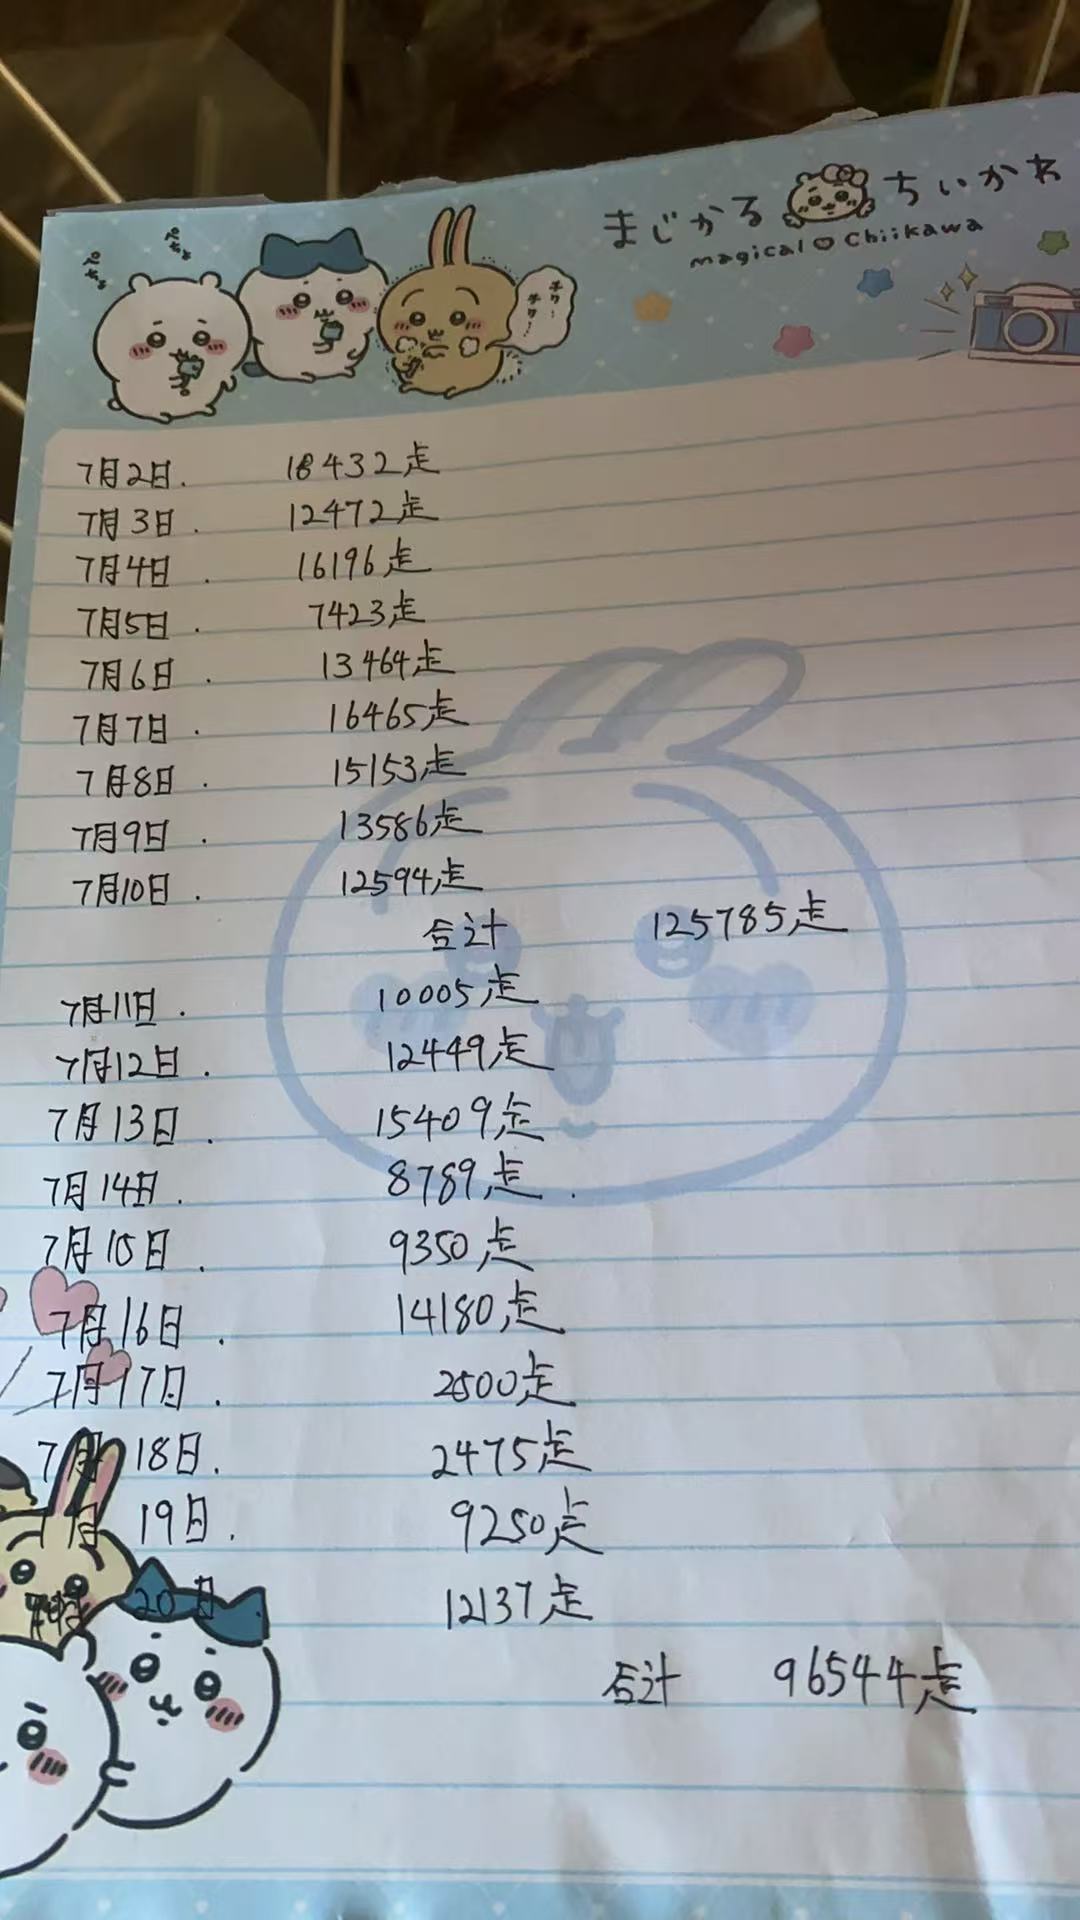 まじかる ちいかわ
magical♡Chiikawa
7月2日. 18432点
7月3日. 12472点
7月4日. 16196点
7月5日. 7423点
7月6日. 13464点
7月7日. 16465点
7月8日. 15153点
7月9日. 13586点
7月10日. 12594点
合计 125785点
7月11日. 10005点
7月12日. 12449点
7月13日. 15409点
7月14日. 8789点.
7月15日. 9350点
7月16日. 14180点
7月17日. 2500点
7月18日. 2475点
7月19日. 9250点
20日. 12137点
合计 96544点